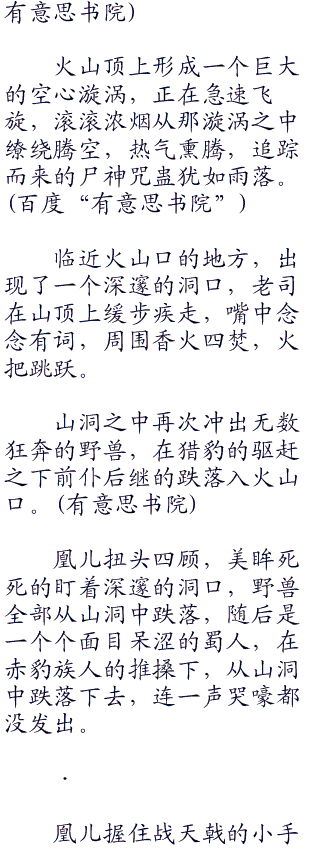 有意思书院)
火山顶上形成一个巨大
的空心漩涡，正在急速飞
旋，滚滚浓烟从那漩涡之中
缭绕腾空，热气熏腾，追踪
而来的尸神咒蛊犹如雨落。
(百度“有意思书院”)
临近火山口的地方，出
现了一个深邃的洞口，老司
在山顶上缓步疾走，嘴中念
念有词，周围香火四焚，火
把跳跃。
山洞之中再次冲出无数
狂奔的野兽，在猎豹的驱赶
之下前仆后继的跌落入火山
口。(有意思书院)
凰儿扭头四顾，美眸死
死的盯着深邃的洞口，野兽
全部从山洞中跌落，随后是
一个个面目呆涩的蜀人，在
赤豹族人的推搡下，从山洞
中跌落下去，连一声哭嚎都
没发出。
.
凰儿握住战天戟的小手